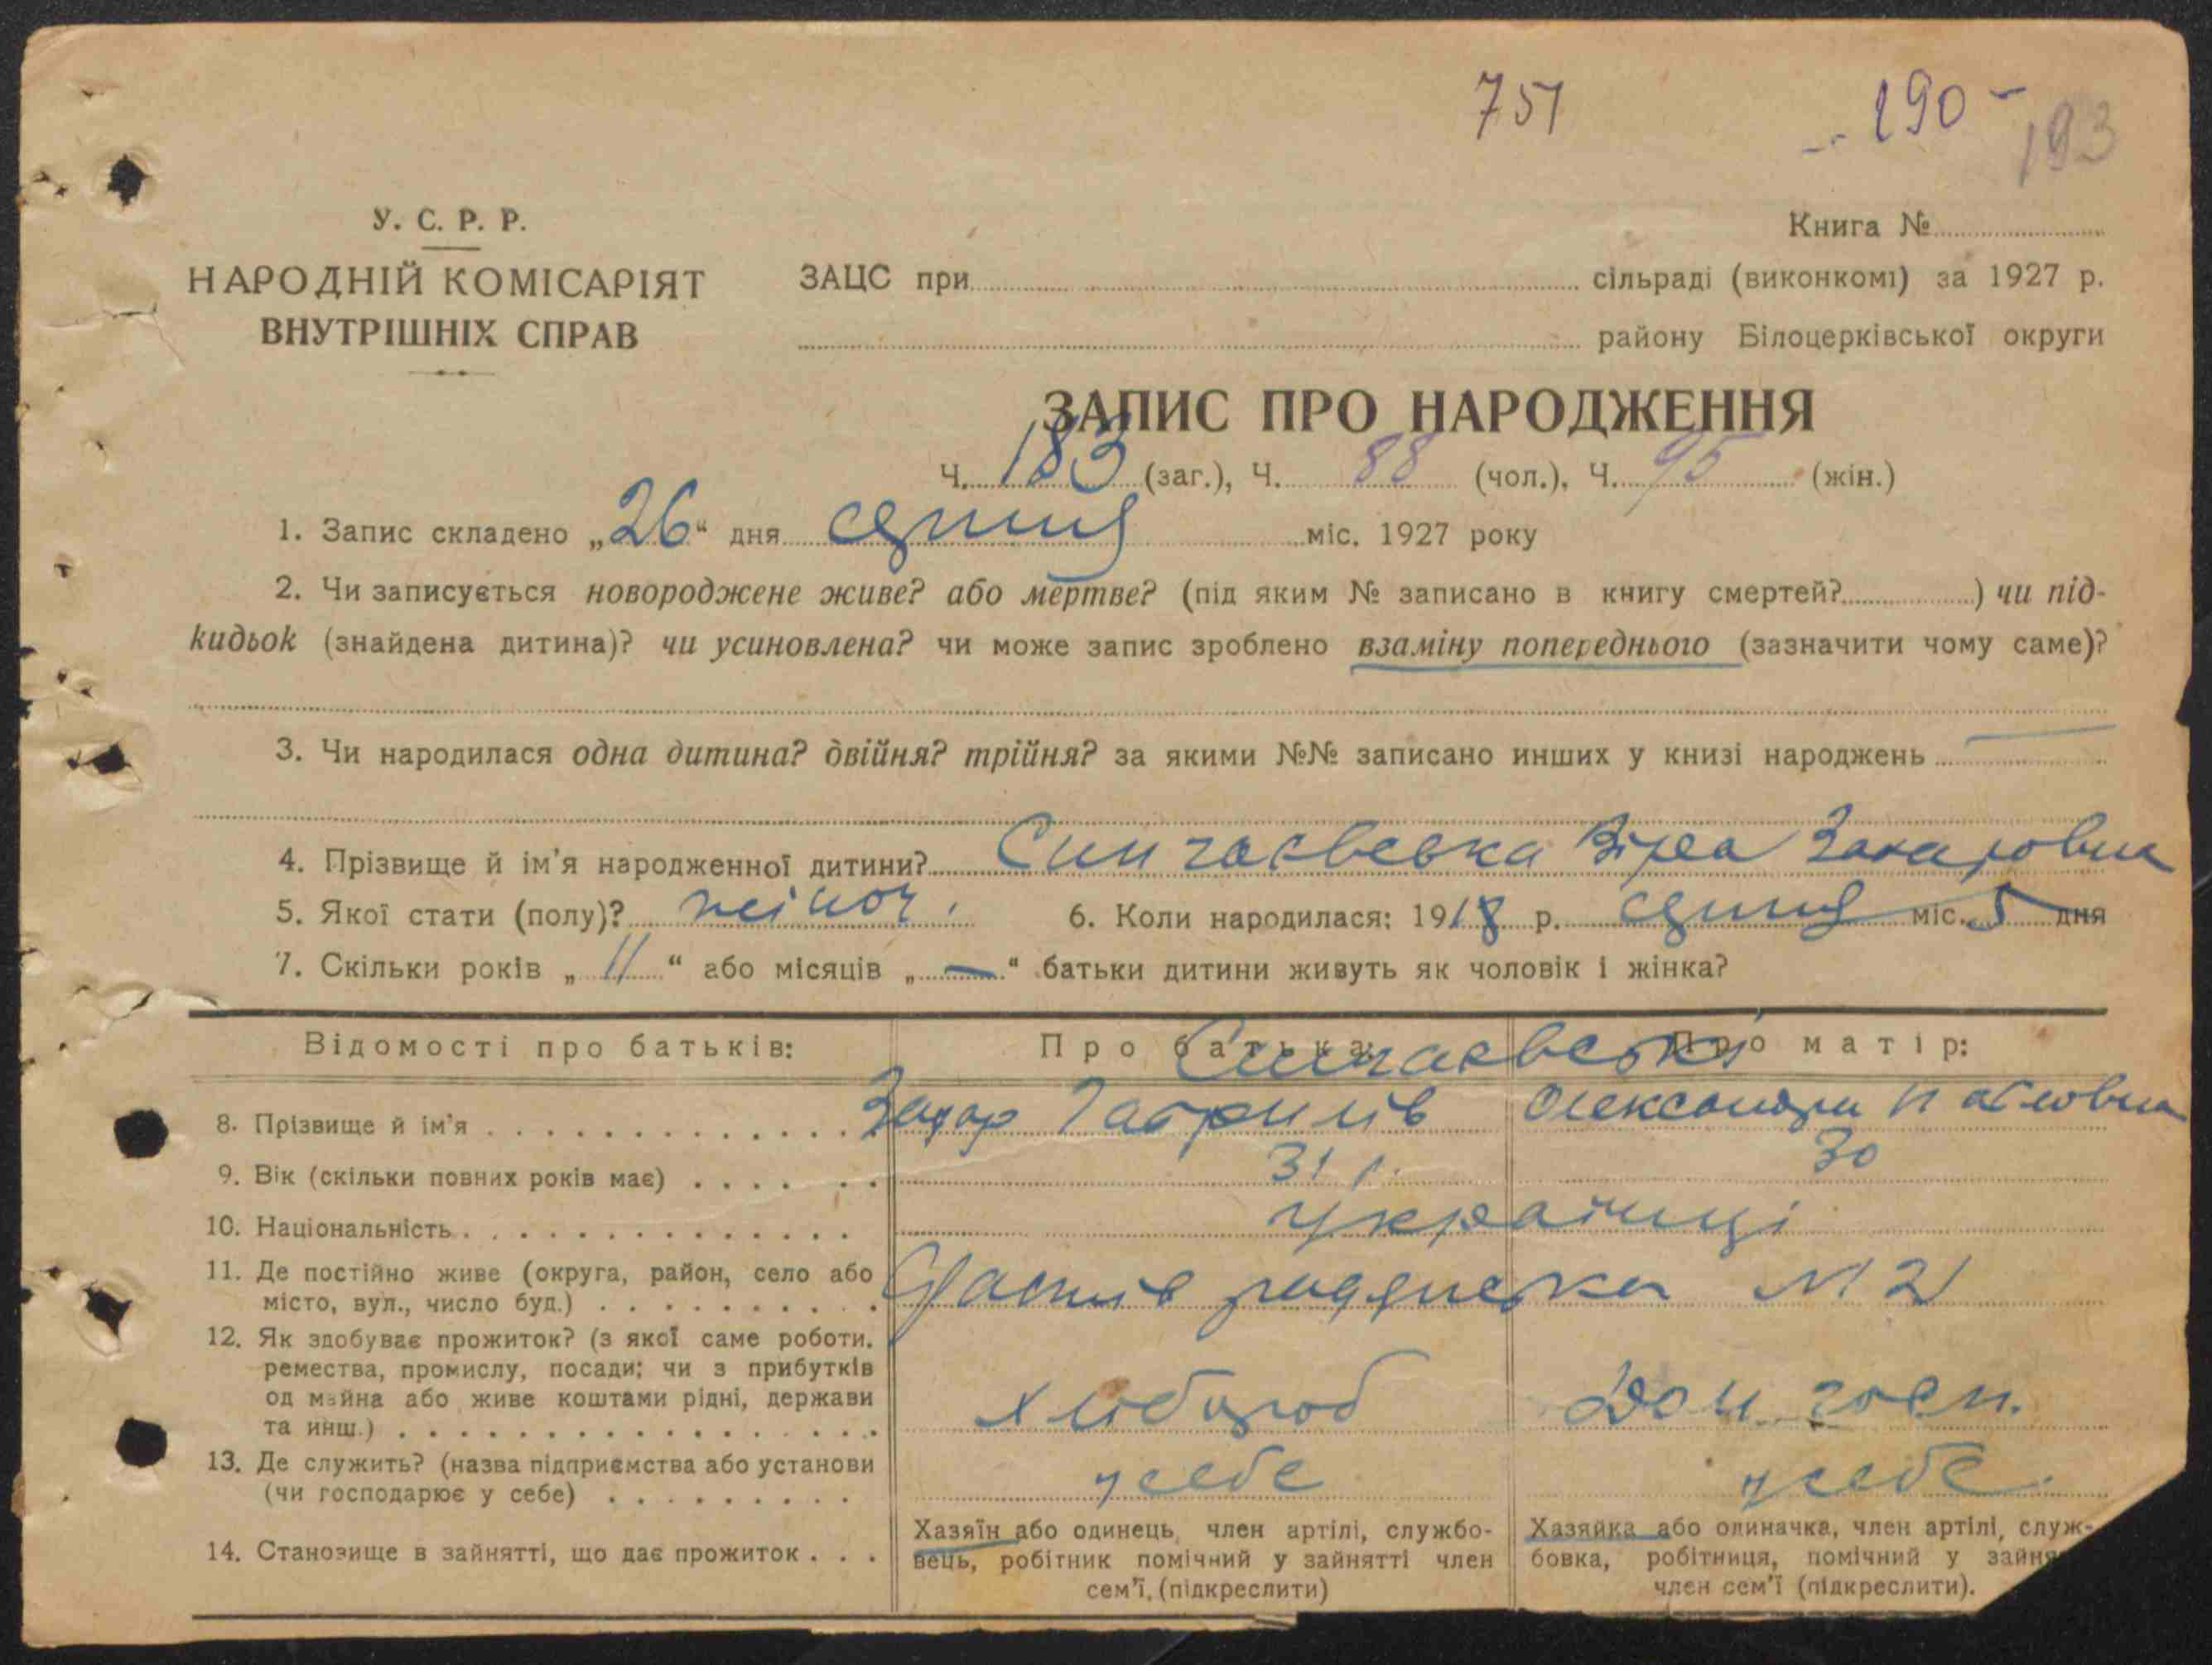 751
190
193
У. С. Р. Р.
Книга №
НАРОДНІЙ КОМІСАРІЯТ
ВНУТРІШНІХ СПРАВ
ЗАЦС при сільраді (виконкомі) за 1927 р.
району Білоцерківської округи
ЗАПИС ПРО НАРОДЖЕННЯ
Ч. 183 (заг.), Ч. 88 (чол.), Ч. 95 (жін.)
1. Запис складено „26“ дня серпня міс. 1927 року
2. Чи записується новороджене живе? або мертве? (під яким № записано в книгу смертей? ) чи під-
кидьок (знайдена дитина)? чи усиновлена? чи може запис зроблено взаміну попереднього (зазначити чому саме)?
3. Чи народилася одна дитина? двійня? трійня? за якими №№ записано инших у книзі народжень —
4. Прізвище й ім'я народженної дитини? Віра Захаровна
5. Якої стати (полу)? жіноч. 6. Коли народилася: 1918 р. серпня міс. 5 дня
7. Скільки років „11“ або місяців „—“ батьки дитини живуть як чоловік і жінка?
Відомості про батьків: Про батька: Про матір:
8. Прізвище й ім'я Захар Гаврилів Олександра Павловна
9. Вік (скільки повних років має) 31 р. 30
10. Національність українці
11. Де постійно живе (округа, район, село або
місто, вул., число буд.) Фастів № 21
12. Як здобуває прожиток? (з якої саме роботи.
ремества, промислу, посади; чи з прибутків
од майна або живе коштами рідні, держави
та инш.) хлібороб Дом. госп.
13. Де служить? (назва підприємства або установи
(чи господарює у себе) у себе у себе.
14. Становище в зайнятті, що дає прожиток
Хазяїн або одинець, член артілі, службо-
вець, робітник помічний у зайнятті член
сем'ї, (підкреслити)
Хазяйка або одиначка, член артілі, служ-
бовка, робітниця, помічний у
член сем'ї (підкреслити).